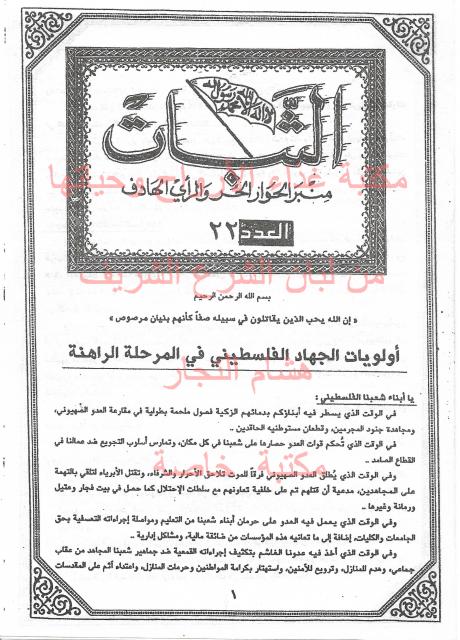 الثبات
لا إله إلا الله محمد رسول الله
منبر الحوار الحر والرأي الهادف
العدد ٢٢
مكتبة غذاء الأرواح وحياتها
من لبان الشرع الشريف
بسم الله الرحمن الرحيم
« إن الله يحب الذين يقاتلون في سبيله صفاً كأنهم بنيان مرصوص »
أولويات الجهاد الفلسطيني في المرحلة الراهنة
هشام النجار
يا أبناء شعبنا الفلسطيني :
في الوقت الذي يسطر فيه أبناؤكم بدمائهم الزكية فصول ملحمة بطولية في مقارعة العدو الصهيوني،
ومجاهدة جنود المجرمين، وقطعان مستوطنيه الحاقدين ..
في الوقت الذي تُحكم قوات العدو حصارها على شعبنا في كل مكان، وتمارس أسلوب التجويع ضد عمالنا في
القطاع الصامد ..
وفي الوقت الذي يُطلق العدو الصهيوني فرقاً للموت تلاحق الأحرار والشرفاء، وتقتل الأبرياء لتلقي بالتهمة
على المجاهدين، مدعية أن قتلهم تم على خلفية تعاونهم مع سلطات الإحتلال كما حصل في بيت فجار وعتيل
ورمانة وغيرها ..
مكتبة خاصة
وفي الوقت الذي يعمل فيه العدو على حرمان أبناء شعبنا من التعليم ومواصلة إجراءاته التعسفية بحق
الجامعات والكليات، إضافة إلى ما تعانيه هذه المؤسسات من ضائقة مالية، ومشاكل إدارية ..
وفي الوقت الذي أخذ فيه عدونا الغاشم بتكثيف إجراءاته القمعية ضد جماهير شعبنا المجاهد من عقاب
جماعي، وهدم للمنازل، وترويع للآمنين، واستهتار بكرامة المواطنين وحرمات المنازل، واعتداء آثم على المقدسات
١